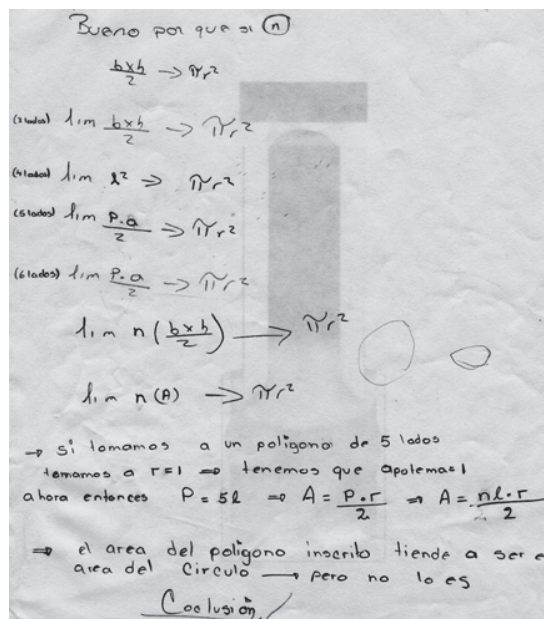 Bueno por que si (n)
b×h/2 → πr²
(3 lados) lim b×h/2 → πr²
(4 lados) lim l² → πr²
(5 lados) lim P.a/2 → πr²
(6 lados) lim P.a/2 → πr²
lim n(b×h/2) → πr²
lim n(A) → πr²
→ si tomamos a un poligono de 5 lados
tomamos a r=1 ⇒ tenemos que apotema=1
ahora entonces P = 5l ⇒ A = P.r/2 ⇒ A = nl.r/2
⇒ el area del poligono inscrito tiende a ser e
area del Circulo → pero no lo es
Coclusión